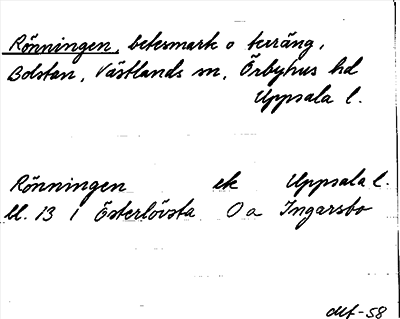 Rönningen, betesmark o terräng,
Bolstan, Västlands sn, Örbyhus hd
Uppsala l.
Rönningen ek Uppsala l.
bl. 13 i Österlövsta Oa Ingarsbo
-58